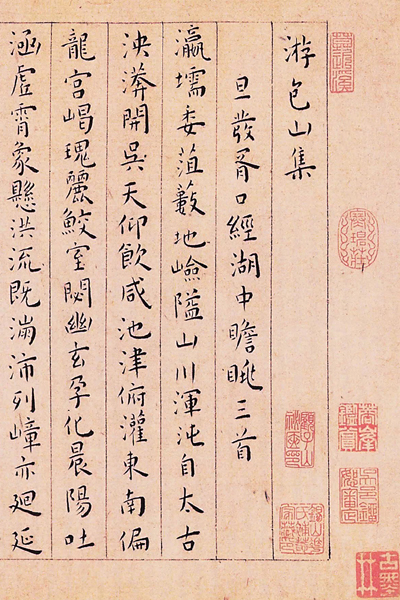 游包山集
旦發胥口經湖中瞻眺三首
瀛壖委菹藪地嶮隘山川渾沌自太古
泱漭開吳天仰飲咸池津俯灌東南偏
龍宮崵瑰麗鮫室閟幽玄孕化晨陽吐
涵虛霄象懸洪流既淌沛列嶂亦迴延